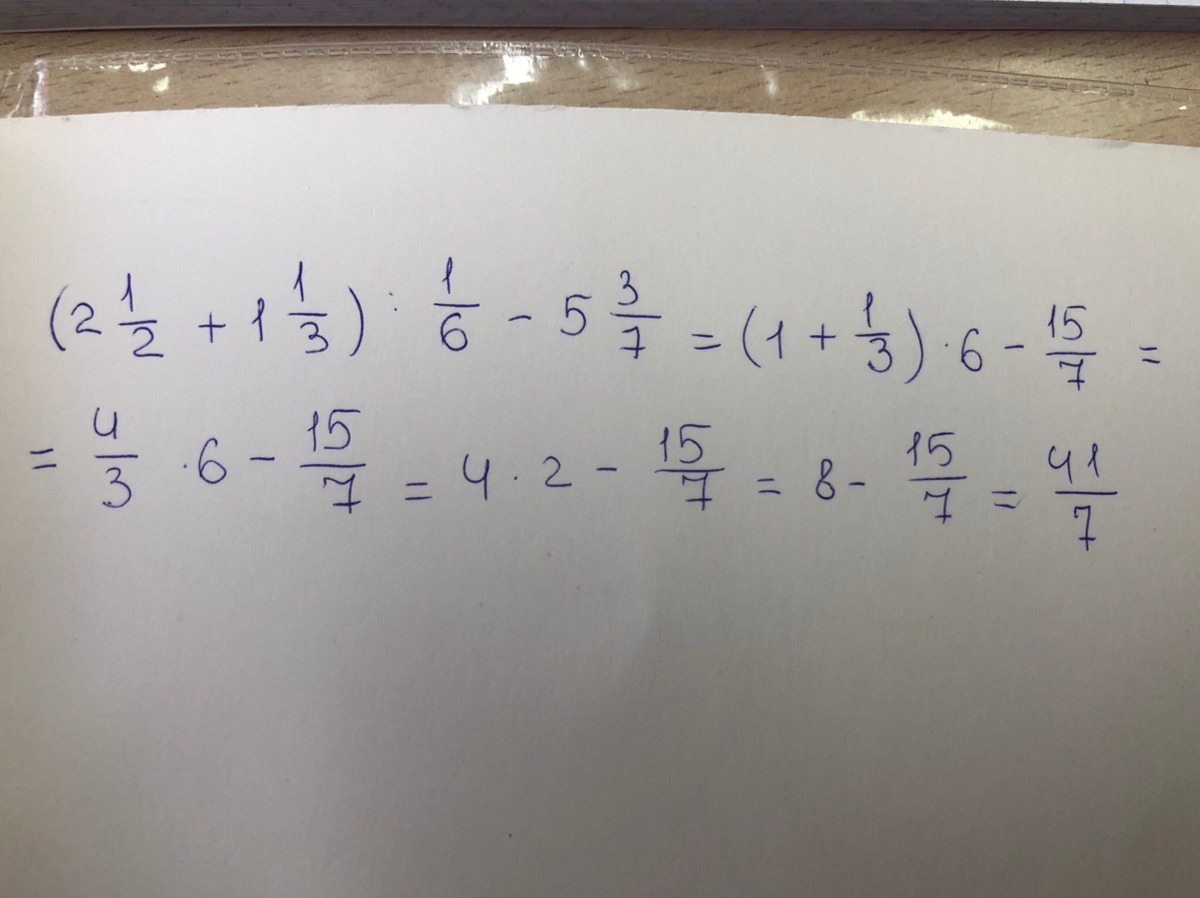 (2 1/2 + 1 1/3) : 1/6 - 5 3/7 = (1 + 1/3) · 6 - 15/7 =
= 4/3 · 6 - 15/7 = 4 · 2 - 15/7 = 8 - 15/7 = 41/7